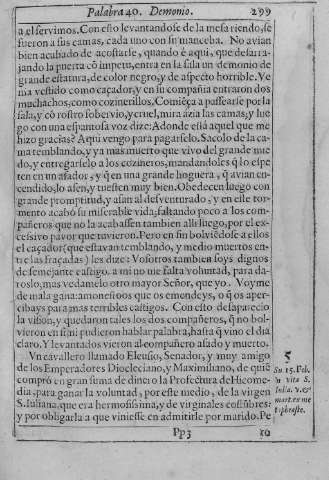 Palabra 40. Demonio. 299
a el servimos. Con esto levantandose de la mesa riendo, se
fueron a sus camas, cada uno con su manceba. No avian
bien acabado de acostarse, quando è aqui, que desarra-
jando la puerta cō impetu, entra en la sala un demonio de
grande estatura, de color negro, y de aspecto horrible. Ve
nia vestido como caçador, y en su compañia entraron dos
muchachos, como cozinerillos. Comiēça a passearse por la
sala, y cō rostro sobervio, y cruel, mira azia las camas, y lue
go con una espantosa voz dize: Adonde està aquel que me
hizo gracias? Aqui vengo para pagarselo. Sacolo de la ca
ma temblando, y ya mas muerto que vivo del grande mie
do, y entregarselo a los cozineros, mandandoles q̄ lo espe
ten en un assador, y q̄ en una grande hoguera, q̄ avian en-
cendido, lo assen, y tuesten muy bien. Obedecen luego con
grande promptitud, y assan al desventurado, y en este tor-
mento acabó su miserable vida, faltando poco a los com-
pañeros que no la acabassen tambien alli luego, por el ex-
cessivo pavor que tuvieron. Pero en fin bolviēdose a ellos
el caçador (que estavan temblando, y medio muertos en-
tre las fraçadas) les dize: Vosotros tambien soys dignos
de semejante castigo. a mi no me falta voluntad, para da-
roslo, mas vedamelo otro mayor Señor, que yo. Voyme
de mala gana: amonestoos que os emendeys, o q̄ os aper-
cibays para mas terribles castigos. Con esto desaparecio
la vision, y quedaron tales los dos compañeros, q̄ no bol-
vieron en si, ni pudieron hablar palabra, hasta q̄ vino el dia
claro. Y levantados vieron al compañero assado y muerto.
Un cavallero llamado Eleusio, Senador, y muy amigo
de los Emperadores Diocleciano, y Maximiliano, de quiē
comprò en gran suma de dinero la Prefectura de Nicome
dia, para ganar la voluntad, por este medio, de la virgen
S. Iuliana, que era hermosissima, y de virginales costūbres:
y por obligarla a que viniesse en admitirle por marido. Pe
5
Su. 15. Feb.
n vita S.
Iulia. v. er
mart. ex me
taphraste.
Pp 3 ro